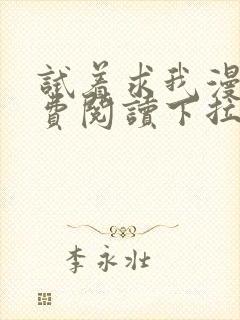 試着求我漫
費閱讀下拉
李永壯